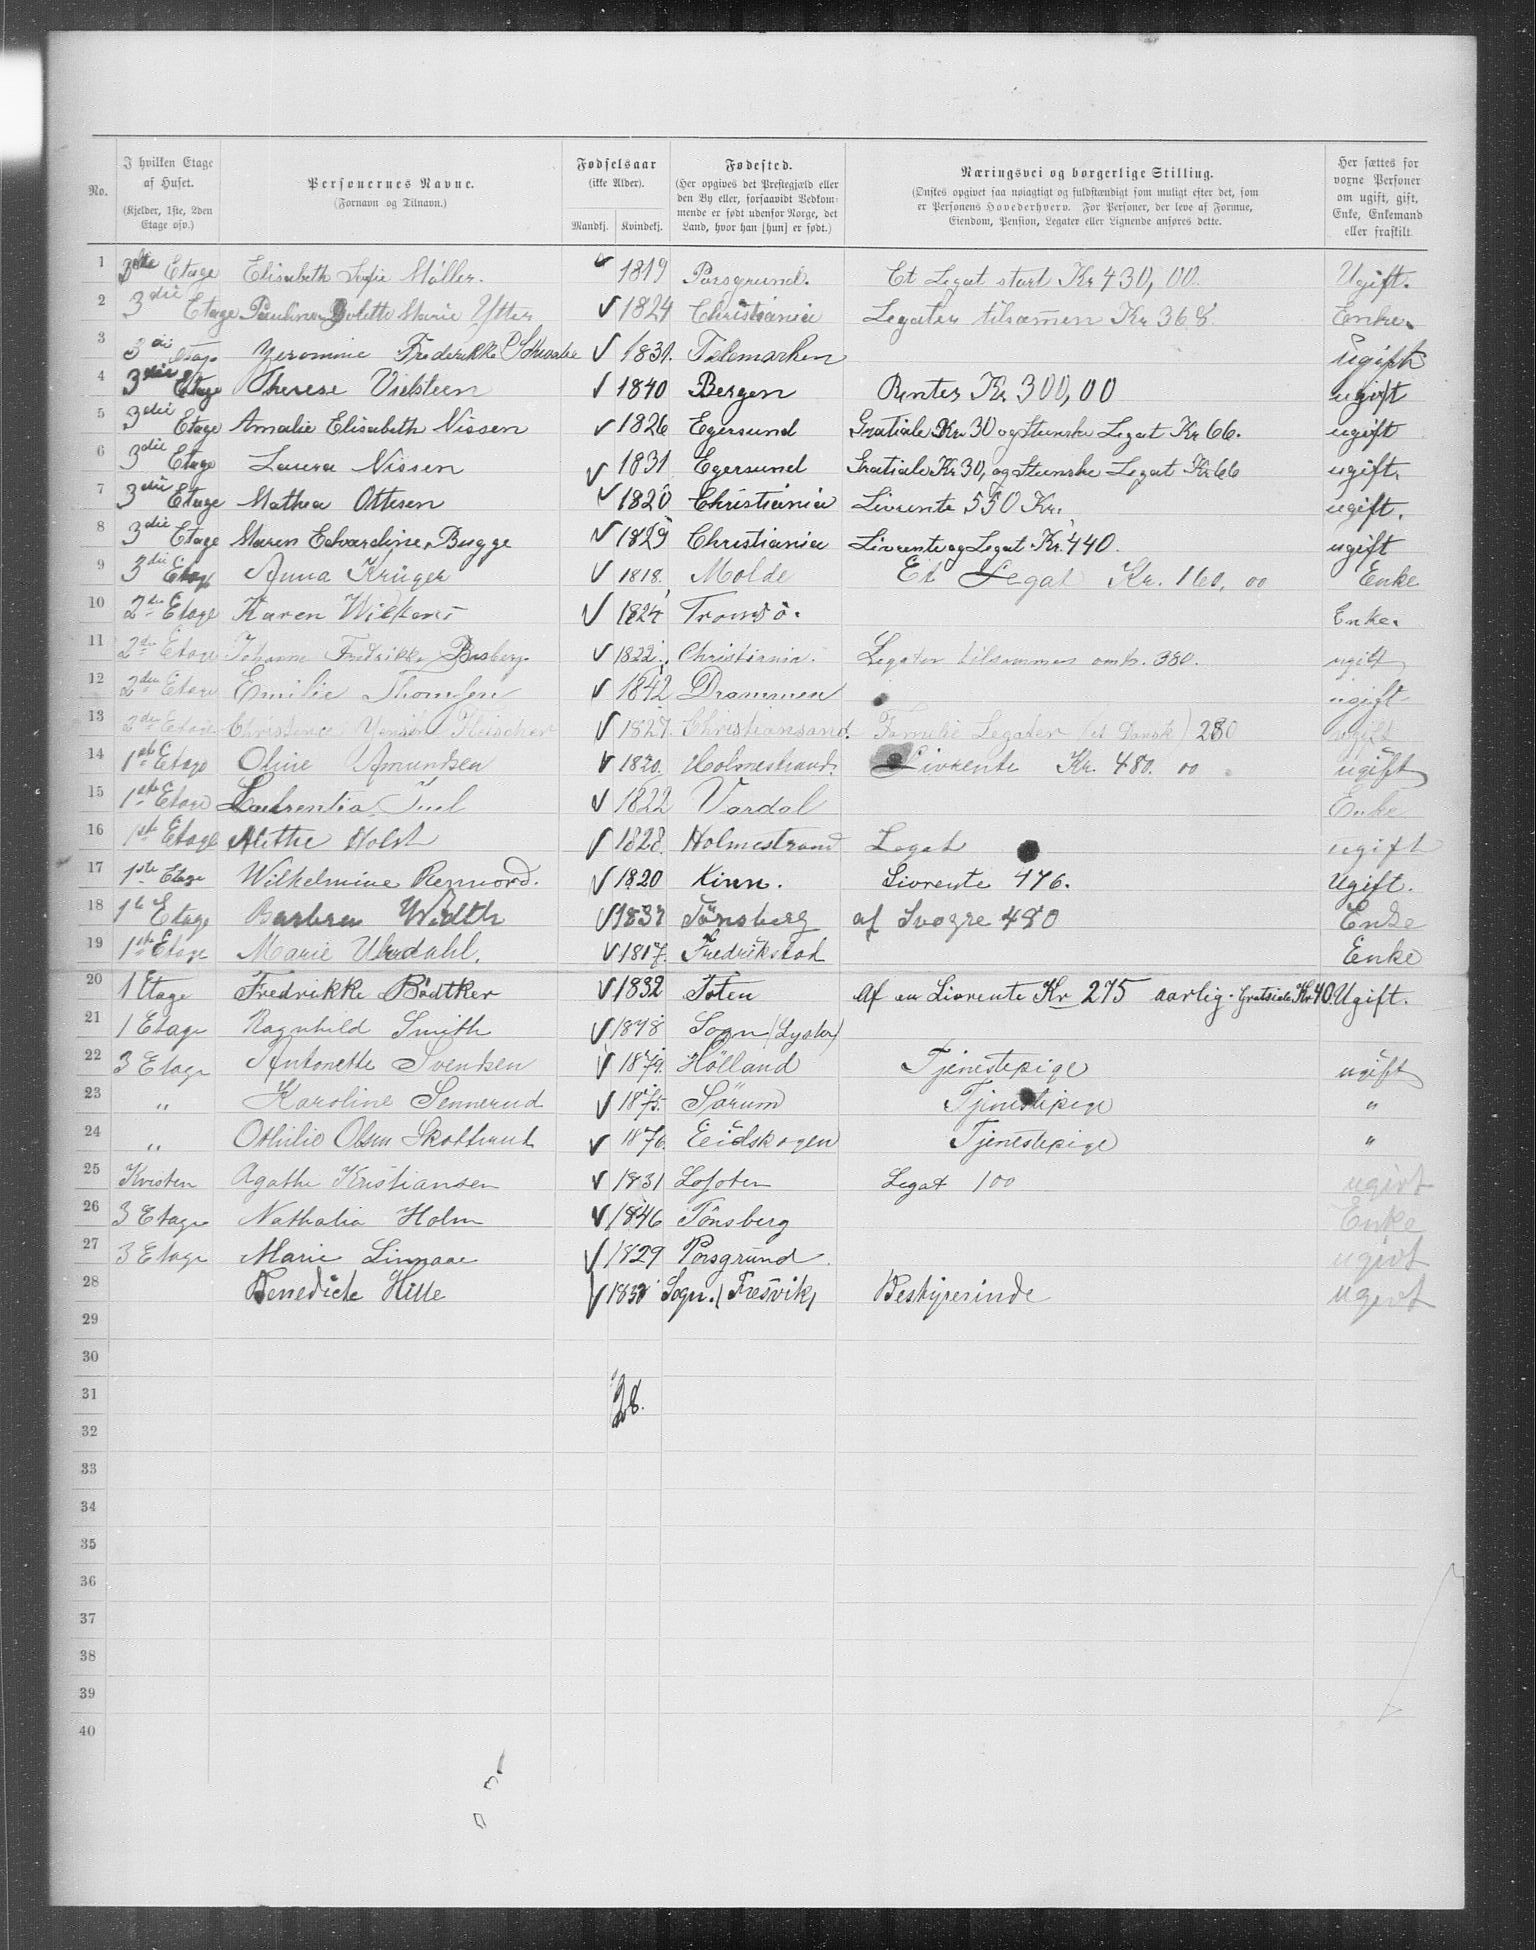 No.
I hvilken Etage af Huset.
(Kjelder, 1ste, 2den Etage osv.)
Personernes Navne.
(Fornavn og Tilnavn.)
Fødselsaar
(ikke Alder).
Mandkj. Kvindekj.
Fødested.
(Her opgives det Prestegjæld eller den By eller, forsaavidt Vedkommende er født udenfor Norge, det Land, hvor han [hun] er født.)
Næringsvei og borgerlige Stilling.
(Ønskes opgivet saa nøiagtigt og fuldstændigt som muligt efter det, som er Personens Hovederhverv. For Personer, der leve af Formue, Eiendom, Pension, Legater eller Lignende anføres dette.
Her sættes for voxne Personer om ugift, gift, Enke, Enkemand eller fraskilt
1 3die Etage Elisabeth Sofie Møller. 1819 Porsgrund. Et Legat stort Kr 430,00. Ugift.
2 3die Etage Pauline Bolette Marie Ytter 1824 Christiania Legater tilsamen Kr 368. Enke.
3 3die Etag. Jeromine Frederikke 1831. Telemarken ugift
4 3die Etage Therese Vibsteen 1840 Bergen Renter Kr 300,00 ugift
5 3die Etage Amalie Elisabeth Nissen 1826 Egersund Gratiale Kr. 30 og Legat Kr 66. ugift
6 3die Etage Laura Nissen 1831 Egersund Gratiale Kr 30, og Legat Kr 66 ugift.
7 3die Etage Mathea Ottesen 1820 Christiania Livrente 550 Kr. ugift.
8 3die Etage Maren Edvardine Bugge 1829 Christiania Livrente og Legat Kr. 440. ugift
9 3die Etage Anna Krüger 1818. Molde Et Legat Kr. 160,00 Enke
10 2den Etage Karen Wilkens 1824 Tromsö. Enke.
11 2den Etage Johanne Fredrikke Boeberg. 1822. Christiania. Legater tilsammen omtr. 380. ugift
12 2den Etage Emilie Thomsen 1842 Drammen ugift
13 2den Etage Christence Jensine Fleischer 1827. Christiansand. Familie Legater (et Dansk) 280 ugift
14 1ste Etage Oline Amundsen 1820. Holmestrand. Livrente Kr. 480.00 ugift
15 1ste Etage Laurentia Juel 1822 Vardal Enke
16 1ste Etage Mette Holst 1828. Holmestrand Legat ugift
17 1ste Etage Wilhelmine Rennord. 1820 Kinn. Livrente 476. Ugift.
18 1ste Etage Barbra Width 1837 Tönsberg af Svogre 480 Enke
19 1ste Etage Marie Urdahl. 1817. Fredrikstad Enke
20 1 Etage Fredrikke Bödtker 1832 Toten Af en Livrente Kr 275 aarlig. Gratiale Kr 40. Ugift.
21 1 Etage Ragnhild Smith 1848 Sogn (Lyster)
22 3 Etage Antonette Svendsen 1879. Hölland Tjenestepige ugift
23 " Karoline Sennerud 1875. Sörum Tjenestepige "
24 " Othilie Olsen Skotterud 1876. Eidskogen Tjenestepige "
25 Kvisten Agathe Kristiansen 1831 Lofoten Legat 100 ugivt
26 3 Etage Nathalia Holm 1846 Tönsberg Enke
27 3 Etage Marie Linnaae 1829 Porsgrund. ugivt
28 Benedicte Hille 1850 Sogn. (Fresvik) Bestyrerinde ugivt
29
30
31 28.
32
33
34
35
36
37
38
39
40